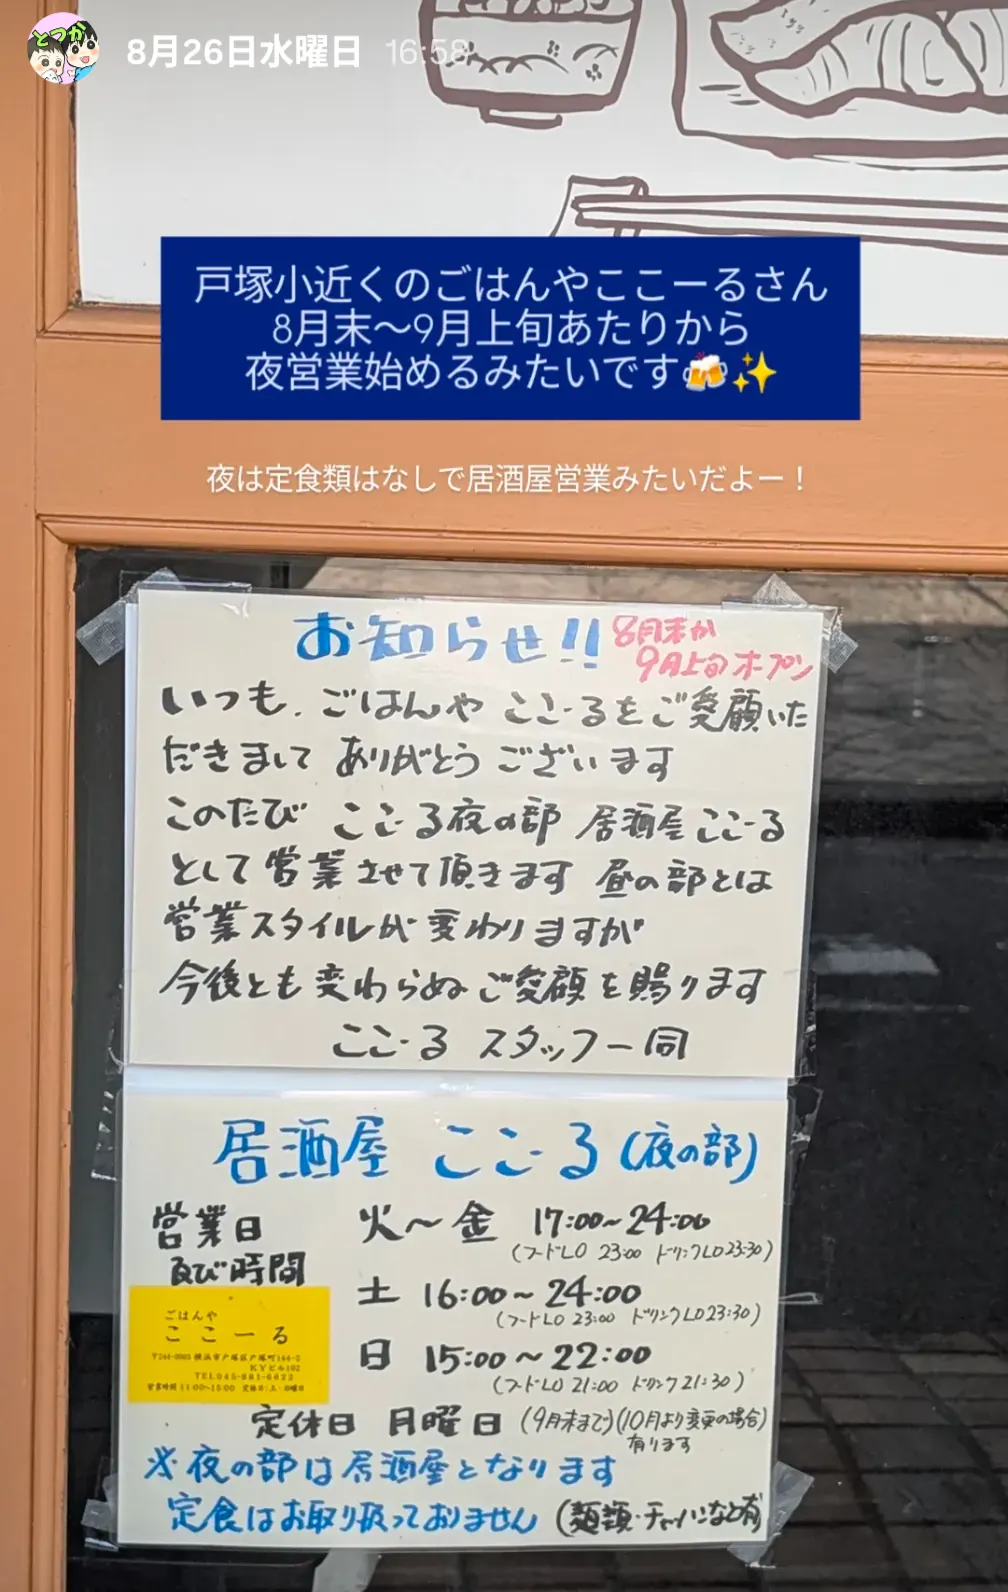 とつか
8月26日水曜日 16:58
戸塚小近くのごはんやここーるさん
8月末～9月上旬あたりから
夜営業始めるみたいです🍻✨
夜は定食類はなしで居酒屋営業みたいだよー！
お知らせ!! 8月末か
9月上旬オープン
いつも、ごはんや ここーるをご愛顧いた
だきまして ありがとうございます
このたび ここーる夜の部 居酒屋ここーる
として営業させて頂きます 昼の部とは
営業スタイルが変わりますが
今後とも変わらぬご愛顧を賜ります
ここーる スタッフ一同
居酒屋 ここーる(夜の部)
営業日 火～金 17:00～24:00
及び時間 (フードLO 23:00 ドリンクLO 23:30)
土 16:00～24:00
(フードLO 23:00 ドリンクLO 23:30)
日 15:00～22:00
(フードLO 21:00 ドリンク21:30)
ごはんや
ここーる
〒244-0003 横浜市戸塚区戸塚町144-2
KYビル102
TEL045-881-6622
営業時間 11:00～15:00 定休日:土・日曜日
定休日 月曜日 (9月末まで)(10月より変更の場合)
有ります
※夜の部は居酒屋となります
定食はお取り扱っておりません (麺類・チャーハンなど有